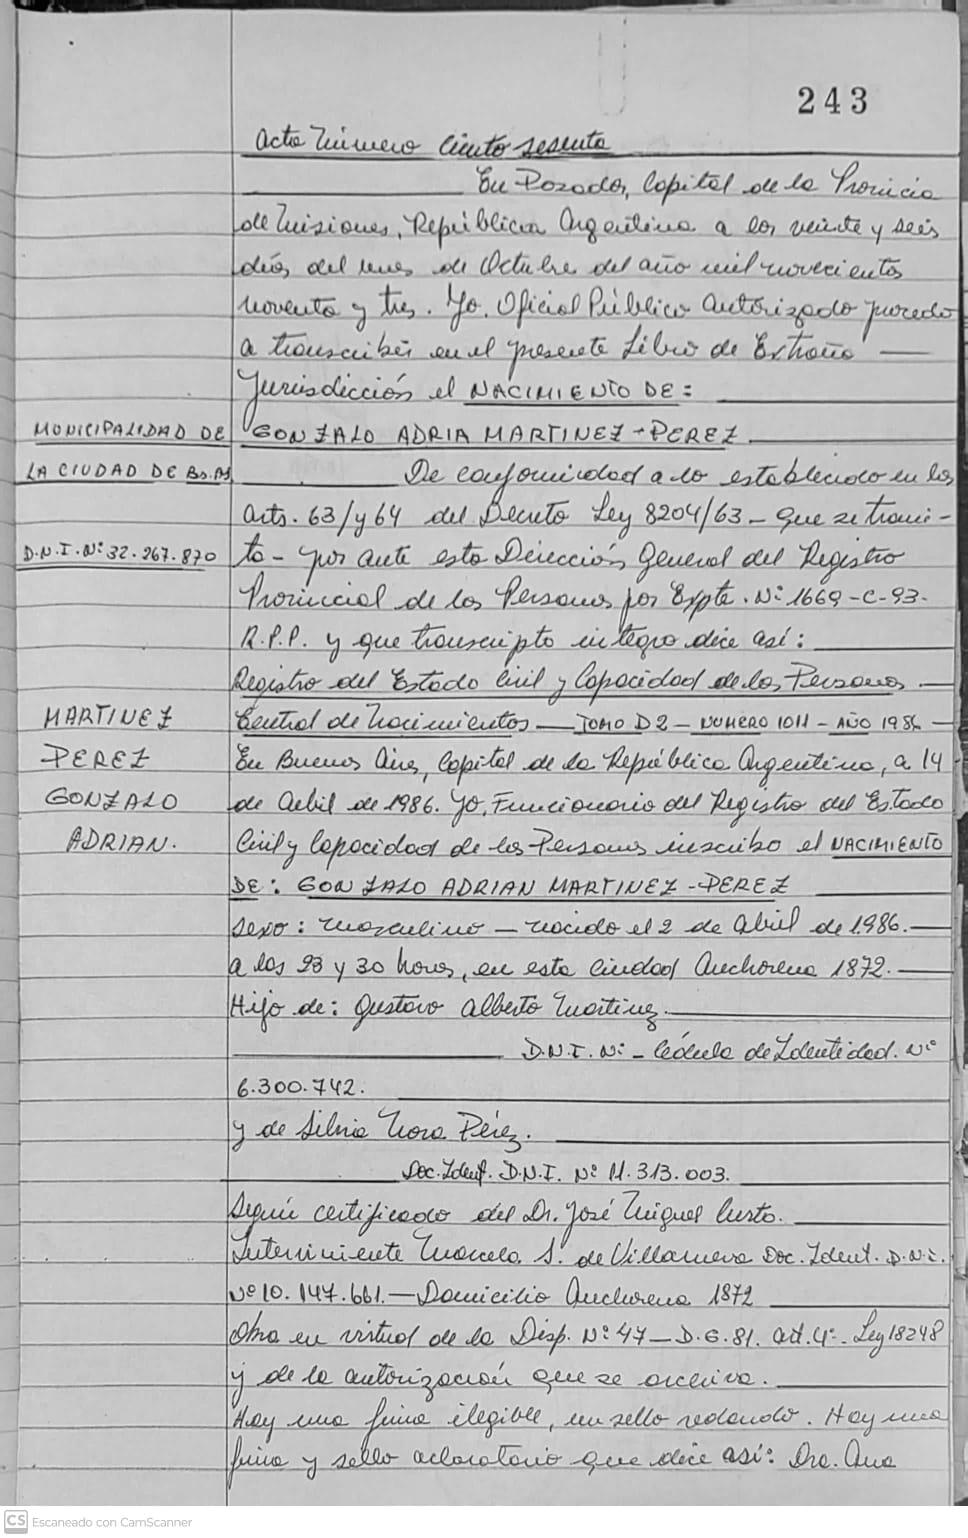 243
Acta Número Ciento sesenta
En Posadas, Capital de la Provincia
de Misiones, República Argentina a los veinte y seis
días del mes de Octubre del año mil novecientos
noventa y tres. Yo, Oficial Público autorizado procedo
a transcribir en el presente Libro de Extraña —
Jurisdicción el NACIMIENTO DE:
MUNICIPALIDAD DE
GONZALO ADRIA MARTINEZ-PEREZ
LA CIUDAD DE Bs.As
De conformidad a lo establecido en los
arts. 63/y 64 del Decreto Ley 8204/63 - que se trami-
D.N.I. Nº 32.267.870
ta - por ante esta Dirección General del Registro
Provincial de las Personas por Expte. Nº 1669-C-93-
R.P.P. y que transcripto integro dice así:
Registro del Estado Civil y Capacidad de las Personas —
MARTINEZ
Central de Nacimientos — TOMO D2 - NUMERO 1011 - AÑO 1986 —
PEREZ
En Buenos Aires, Capital de la República Argentina, a 14
GONZALO
de Abril de 1986. Yo, Funcionario del Registro del Estado
ADRIAN.
Civil y Capacidad de las Personas inscribo el NACIMIENTO
DE: GONZALO ADRIAN MARTINEZ-PEREZ
sexo: masculino — nacido el 2 de Abril de 1986. —
a las 23 y 30 horas, en esta Ciudad Anchorena 1872. —
Hijo de: Gustavo Alberto Martinez.
D.N.I. Nº - Cédula de Identidad. Nº
6.300.742.
y de Silvia Nora Pérez.
Doc. Ident. D.N.I. Nº 11.313.003.
Según certificado del Dr. José Miguel Curto.
Interviniente Marcela S. de Villanueva Doc. Ident. D.N.I.
Nº 10.147.661. — Domicilio Anchorena 1872
Obra en virtud de la Disp. Nº 47 — D.G.81. art. 4º - Ley 18248
y de la autorización que se archiva.
Hay una firma ilegible, un sello redondo. Hay una
firma y sello aclaratorio que dice así: Dra. Ana
CS Escaneado con CamScanner